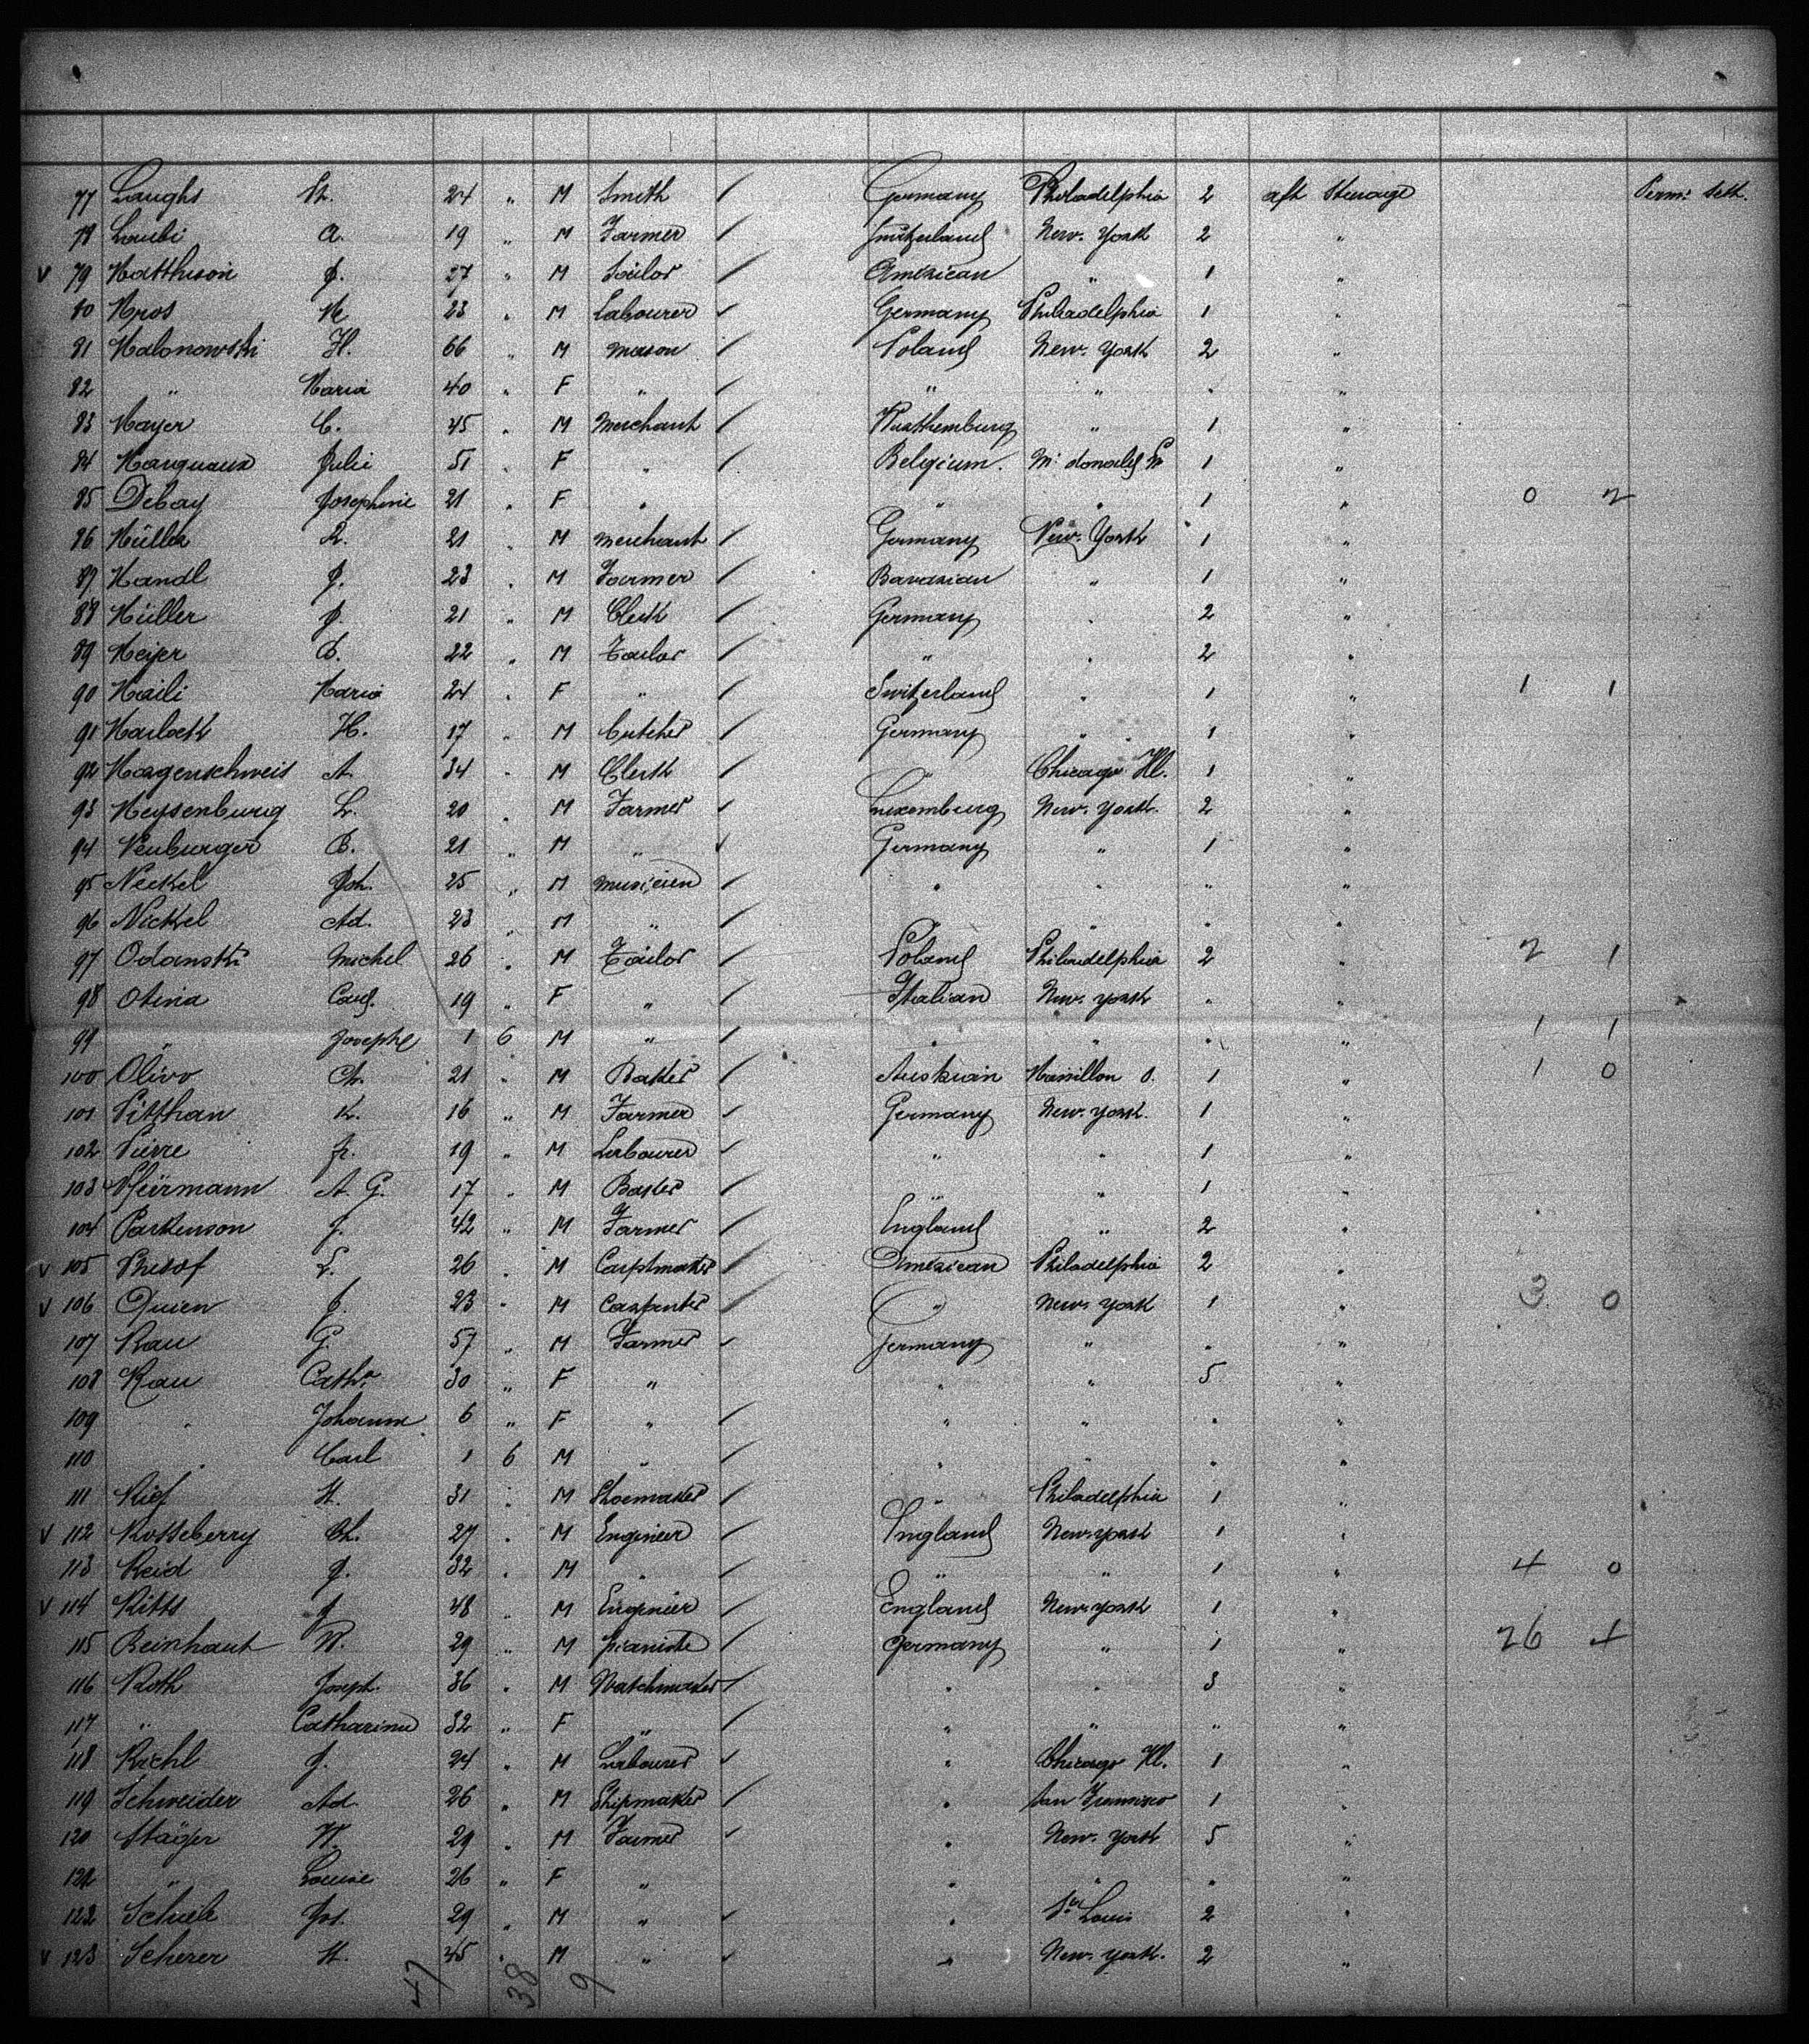 77 Laughs St. 24 " M Smith / Germany Philadelphia 2 aft Steerage Perm: Seth.
78 Laubi A. 19 " M Farmer / Switzerland New. York 2 "
v 79 Matthison J. 27 " M Sailor / American " 1 "
80 Mros M 23 " M Labourer / Germany Philadelphia 1 "
81 Malonowski H. 66 " M mason / Poland New. York 2 "
82 " Maria 40 " F " / " " " "
83 Mayer C. 45 " M Merchant / Wurthemburg " 1 "
84 Marquaux Julie 51 " F " / Belgium. Mc donald 1 "
85 Debay Josephine 21 " F " " " 1 " 0 2
86 Müller R. 21 " M Merchant / Germany New. York 1 "
87 Mandl J. 23 " M Farmer / Bavarian " 1 "
88 Müller J. 21 " M Clerk / Germany " 2 "
89 Meyer B. 22 " M Tailor / " " 2 "
90 Maili Maria 24 " F " / Switzerland " 1 " 1 1
91 Marlock H. 17 " M Butcher / Germany " 1 "
92 Magenschweis A. 34 " M Clerk / " Chicago Ill. 1 "
93 Meysenburg L. 20 " M Farmer / Luxemburg New. York. 2 "
94 Neuburger B. 21 " M " / Germany " 1 "
95 Neckel Joh. 25 " M musicien / " " " "
96 Nickel Ad. 23 " M " / " " " "
97 Odanski Michel 26 " M Tailor / Poland Philadelphia 2 " 2 1
98 Otina 19 " F " / Italian New. York " "
99 " Josephe 1 6 M " / " " " " 1 1
100 Olivo Ch. 21 " M Baker / Austrian Massillon O. 1 " 1 0
101 Pitthan K. 16 " M Farmer / Germany New. York. 1 "
102 Pierre Fr. 19 " M Labourer / " " 1 "
103 A. G. 17 " M Baker / " " 1 "
104 Parkenson J. 42 " M Farmer / England " 2 "
v 105 L. 26 " M Carptmaker / American Philadelphia 2 "
v 106 Quien J. 23 " M Carpenter / " New. York 1 " 3 0
107 Rau G. 57 " M Farmer / Germany " " "
108 Rau Cath. 30 " F " " " 5 "
109 " Johanna 6 " F " / " " " "
110 " Carl 1 6 M " / " " " "
111 Rief St. 31 " M Shoemaker / " Philadelphia 1 "
v 112 Rotteberry Ch. 27 " M Engineer / England New. York 1 "
113 Reid J. 32 " M " / " " 1 " 4 0
v 114 Ritts J 48 " M Engineer / England New. York 1 "
115 Reinhaut W. 29 " M pianiste / Germany " 1 " 26 4
116 Roth Joseph. 36 " M Watchmaker / " " 3 "
117 " Catharina 32 " F " / " " " "
118 Riehl J. 24 " M Labourer / " Chicago Ill. 1 "
119 Schneider Ad. 26 " M Shipmaker / " San Francisco 1 "
120 Stäger W. 29 " M Farmer / " New. York 5 "
121 " Louise 26 " F " " " " "
122 Schule Jos. 29 " M " / " St. Louis 2 "
v 123 Scherer St. 45 " M " / " New. York. 2 "
47 38 9